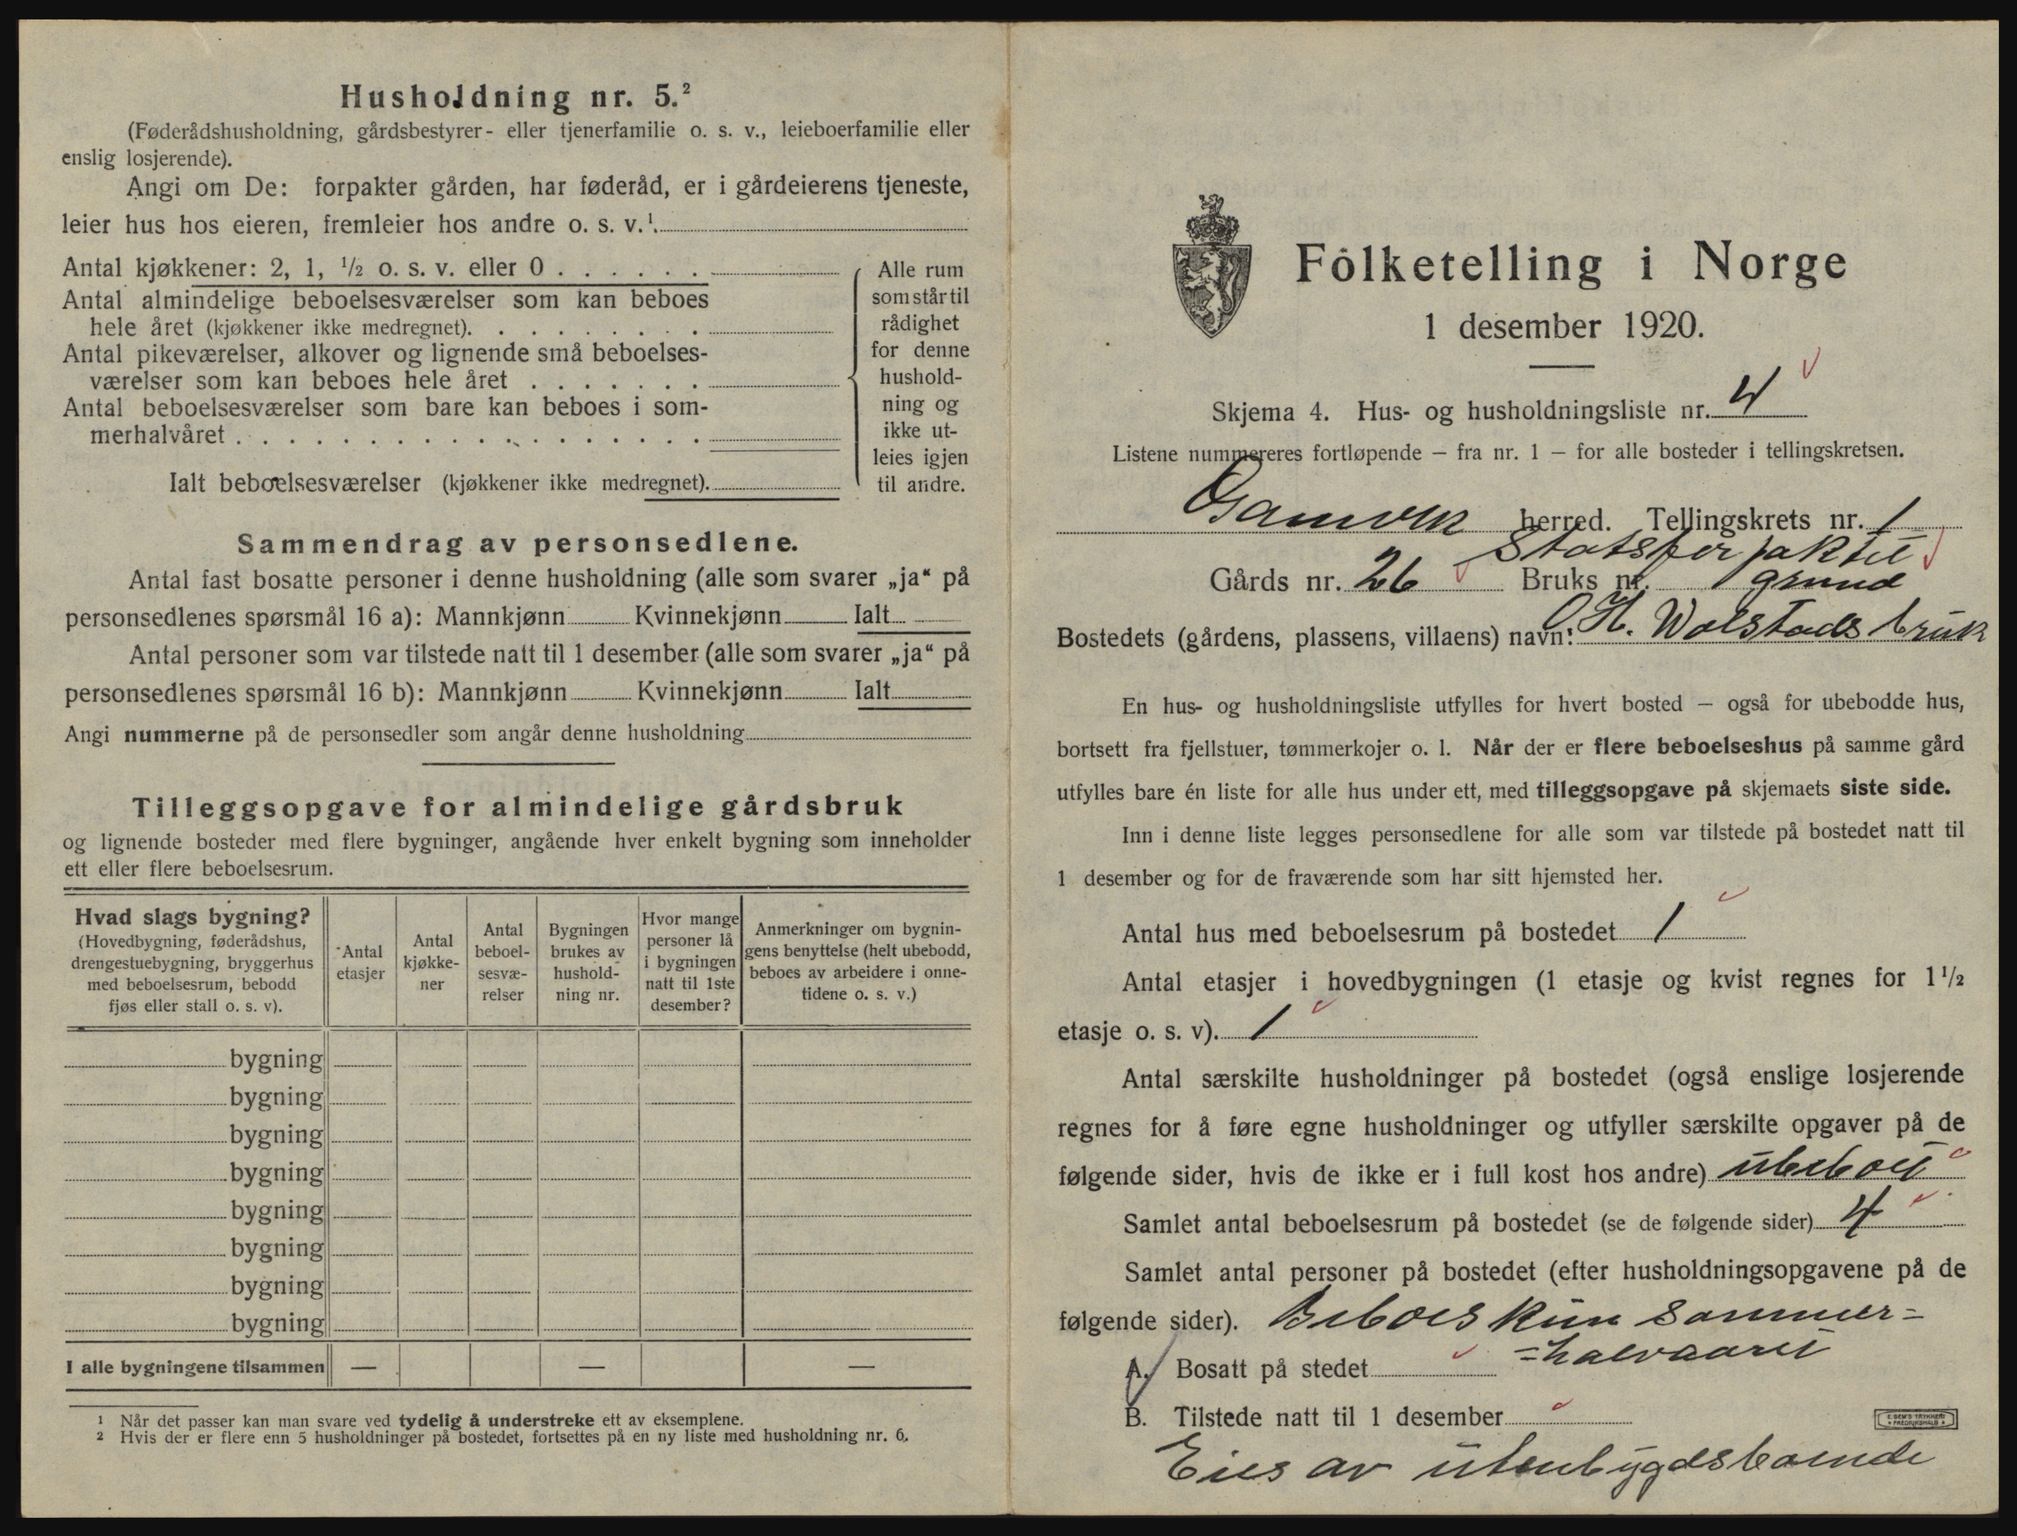 Husholdning nr. 5.²
(Føderådshusholdning, gårdsbestyrer- eller tjenerfamilie o. s. v., leieboerfamilie eller
enslig losjerende).
Angi om De: forpakter gården, har føderåd, er i gårdeierens tjeneste,
leier hus hos eieren, fremleier hos andre o. s. v.¹.
Antal kjøkkener: 2, 1, ½ o. s. v. eller 0 . . . . . .
Antal almindelige beboelsesværelser som kan beboes
hele året (kjøkkener ikke medregnet). . . . . . . . .
Antal pikeværelser, alkover og lignende små beboelses-
værelser som kan beboes hele året . . . . . . .
Antal beboelsesværelser som bare kan beboes i som-
merhalvåret . . . . . . . . . . . . . . . . . .
Ialt beboelsesværelser (kjøkkener ikke medregnet).
Alle rum
som står til
rådighet
for denne
hushold-
ning og
ikke ut-
leies igjen
til andre.
Sammendrag av personsedlene.
Antal fast bosatte personer i denne husholdning (alle som svarer „ja“ på
personsedlenes spørsmål 16 a): Mannkjønn Kvinnekjønn Ialt
Antal personer som var tilstede natt til 1 desember (alle som svarer „ja“ på
personsedlenes spørsmål 16 b): Mannkjønn Kvinnekjønn Ialt
Angi nummerne på de personsedler som angår denne husholdning
Tilleggsopgave for almindelige gårdsbruk
og lignende bosteder med flere bygninger, angående hver enkelt bygning som inneholder
ett eller flere beboelsesrum.
Hvad slags bygning?
(Hovedbygning, føderådshus,
drengestuebygning, bryggerhus
med beboelsesrum, bebodd
fjøs eller stall o. s. v).
Antal
etasjer
Antal
kjøkke-
ner
Antal
beboel-
sesvæ-
relser
Bygningen
brukes av
hushold-
ning nr.
Hvor mange
personer lå
i bygningen
natt til 1ste
desember?
Anmerkninger om bygnin-
gens benyttelse (helt ubebodd,
beboes av arbeidere i onne-
tidene o. s. v.)
bygning
bygning
bygning
bygning
bygning
bygning
bygning
bygning
I alle bygningene tilsammen — — —
¹ Når det passer kan man svare ved tydelig å understreke ett av eksemplene.
² Hvis der er flere enn 5 husholdninger på bostedet, fortsettes på en ny liste med husholdning nr. 6.
Folketelling i Norge
1 desember 1920.
Skjema 4. Hus- og husholdningsliste nr. 4
Listene nummereres fortløpende – fra nr. 1 – for alle bosteder i tellingskretsen.
Gamvik herred. Tellingskrets nr. 1
Statsforpaktet
Gårds nr. 26 Bruks nr. grund
Bostedets (gårdens, plassens, villaens) navn: O H. Wolstads bruk
En hus- og husholdningsliste utfylles for hvert bosted – også for ubebodde hus,
bortsett fra fjellstuer, tømmerkojer o. l. Når der er flere beboelseshus på samme gård
utfylles bare én liste for alle hus under ett, med tilleggsopgave på skjemaets siste side.
Inn i denne liste legges personsedlene for alle som var tilstede på bostedet natt til
1 desember og for de fraværende som har sitt hjemsted her.
Antal hus med beboelsesrum på bostedet 1
Antal etasjer i hovedbygningen (1 etasje og kvist regnes for 1½
etasje o. s. v). 1
Antal særskilte husholdninger på bostedet (også enslige losjerende
regnes for å føre egne husholdninger og utfyller særskilte opgaver på de
følgende sider, hvis de ikke er i full kost hos andre) ubeboet
Samlet antal beboelsesrum på bostedet (se de følgende sider) 4
Samlet antal personer på bostedet (efter husholdningsopgavene på de
følgende sider). Beboes kun sommer=
=halvaaret
A. Bosatt på stedet
B. Tilstede natt til 1 desember
E. SEM'S TRYKKERI
FREDRIKSHALD
Eies av utenbygdsboende